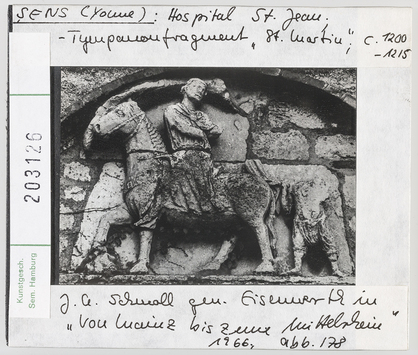 SENS (Yonne): Hospital St. Jean:
- Tympanonfragment „St. Martin“; c. 1200
- 1215
203126
Kunstgesch.
Sem. Hamburg
J. A. Schmoll gen. Eisenwerth in
„Von Mainz bis zum Mittelrhein“
1966, abb. 178